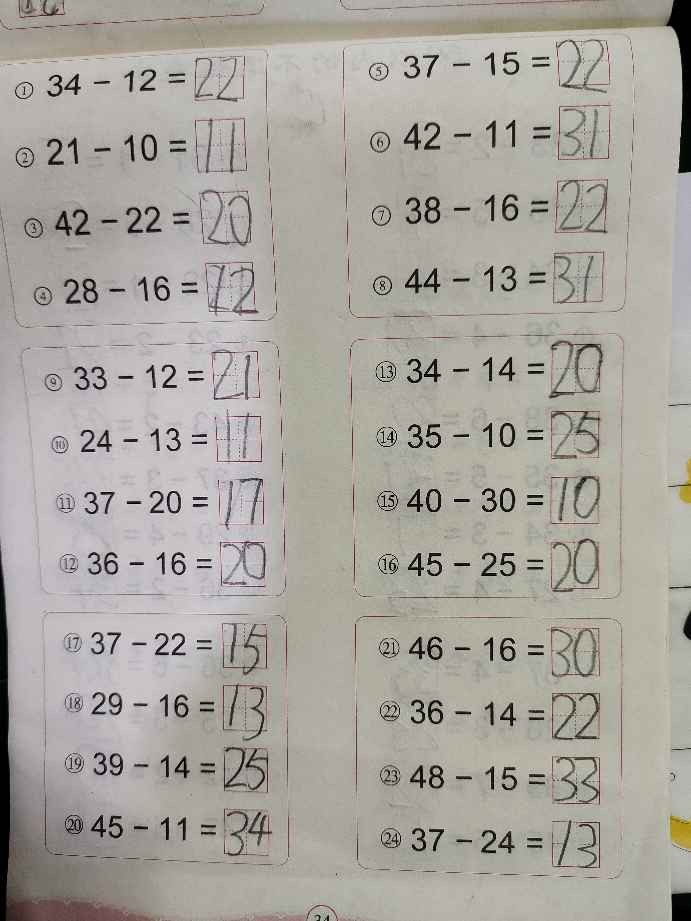 ① 34 − 12 = 22
② 21 − 10 = 11
③ 42 − 22 = 20
④ 28 − 16 = 12
⑤ 37 − 15 = 22
⑥ 42 − 11 = 31
⑦ 38 − 16 = 22
⑧ 44 − 13 = 31
⑨ 33 − 12 = 21
⑩ 24 − 13 = 11
⑪ 37 − 20 = 17
⑫ 36 − 16 = 20
⑬ 34 − 14 = 20
⑭ 35 − 10 = 25
⑮ 40 − 30 = 10
⑯ 45 − 25 = 20
⑰ 37 − 22 = 15
⑱ 29 − 16 = 13
⑲ 39 − 14 = 25
⑳ 45 − 11 = 34
㉑ 46 − 16 = 30
㉒ 36 − 14 = 22
㉓ 48 − 15 = 33
㉔ 37 − 24 = 13